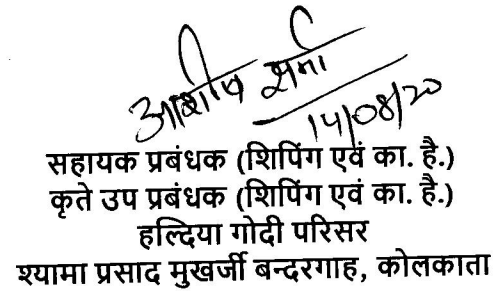 आशीष शर्मा
14/08/20
सहायक प्रबंधक (शिपिंग एवं का. है.)
कृते उप प्रबंधक (शिपिंग एवं का. है.)
हल्दिया गोदी परिसर
श्यामा प्रसाद मुखर्जी बन्दरगाह, कोलकाता